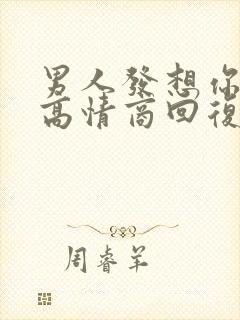 男人發想你
高情商回復
周睿羊